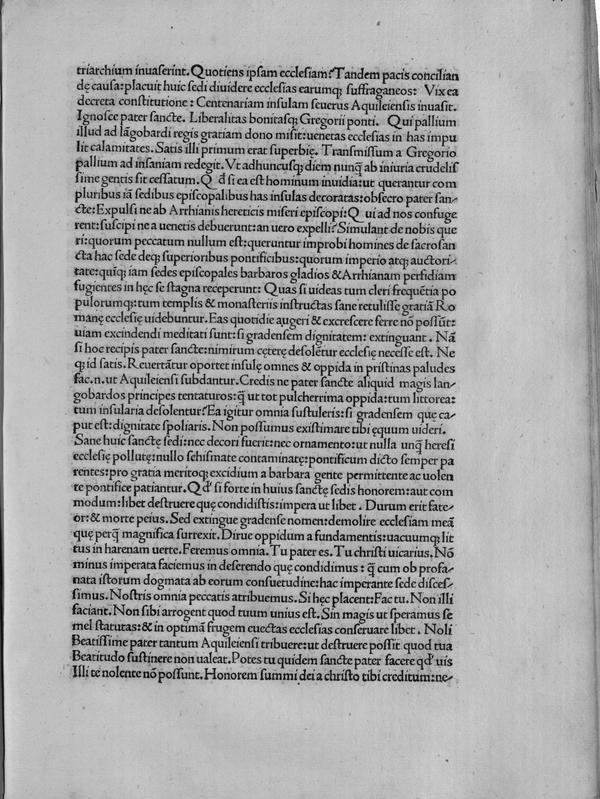 triarchium inuaserint. Quotiens ipsam ecclesiam? Tandem pacis concilian
dę causa: placuit huic sedi diuidere ecclesias earumq; suffraganeos: Vix ea
decreta constitutione: Centenariam insulam seuerus Aquileiensis inuasit.
Ignosce pater sancte. Liberalitas bonitasq; Gregorii ponti. Qui pallium
illud ad lāgobardi regis gratiam dono misit: uenetas ecclesias in has impu
lit calamitates. Satis illi primum erat superbię. Transmissum a Gregorio
pallium ad insaniam redegit. Vt adhuncusq; diem nunq̄ ab iniuria crudelis
sime gentis sit cessatum. Q d̄ si ea est hominum inuidia: ut querantur com
pluribus iā sedibus episcopalibus has insulas decoratas: obsecro pater san-
cte: Expulsi ne ab Arrhianis hereticis miseri episcopi: Q ui ad nos confuge
rent: suscipi ne a uenetis debuerunt: an uero expelli? Simulant de nobis que
ri: quorum peccatum nullum est: queruntur improbi homines de sacrosan
cta hac sede deq; superioribus pontificibus: quorum imperio atq; auctori-
tate: quiq; iam sedes episcopales barbaros gladios & Arrhianam perfidiam
fugientes in hęc se stagna receperunt: Quas si uideas tum cleri frequētia po
pulorumq;: tum templis & monasteriis instructas sane retulisse gratiā Ro
manę ecclesię uidebuntur. Eas quotidie augeri & excrescere ferre nō possūt:
uiam excindendi meditati sunt: si gradensem dignitatem: extinguant. Nā
si hoc recipis pater sancte: nimirum cęterę desolentur ecclesię necesse est. Ne
q; id satis. Reuertātur oportet insulę omnes & oppida in pristinas paludes
fac. n. ut Aquileiensi subdantur. Credis ne pater sancte aliquid magis lan-
gobardos principes tentaturos: q̄ ut tot pulcherrima oppida: tum littorea:
tum insularia desolentur? Ea igitur omnia sustuleris: si gradensem que ca-
put est: dignitate spoliaris. Non possumus existimare tibi ęquum uideri.
Sane huic sanctę sedi: nec decori fuerit: nec ornamento: ut nulla unq̄ heresi
ecclesię pollutę: nullo schismate contaminatę: pontificum dicto semper pa
rentes: pro gratia meritoq; excidium a barbara gente permittente ac uolen
te pontifice patiantur. Q d̄ si forte in huius sanctę sedis honorem: aut com
modum: libet destruere quę condidistis: impera ut libet. Durum erit fate-
or: & morte peius. Sed extingue gradense nomen: demolire ecclesiam meā
quę perq̄ magnifica surrexit. Dirue oppidum a fundamentis: uacuumq; lit
tus in harenam uerte. Feremus omnia. Tu pater es. Tu christi uicarius. Nō
minus imperata faciemus in deserendo quę condidimus: q̄ cum ob profa-
nata istorum dogmata ab eorum consuetudine: hac imperante sede disces-
simus. Nostris omnia peccatis atribuemus. Si hęc placent: Fac tu. Non illi
faciant. Non sibi arrogent quod tuum unius est. Sin magis ut speramus se
mel statutas: & in optimā frugem euectas ecclesias conseruare libet. Noli
Beatissime pater tantum Aquileiensi tribuere: ut destruere possit quod tua
Beatitudo sustinere non ualeat. Potes tu quidem sancte pater facere qd̄ uis
Illi te nolente nō possunt. Honorem summi dei a christo tibi creditum: ne-